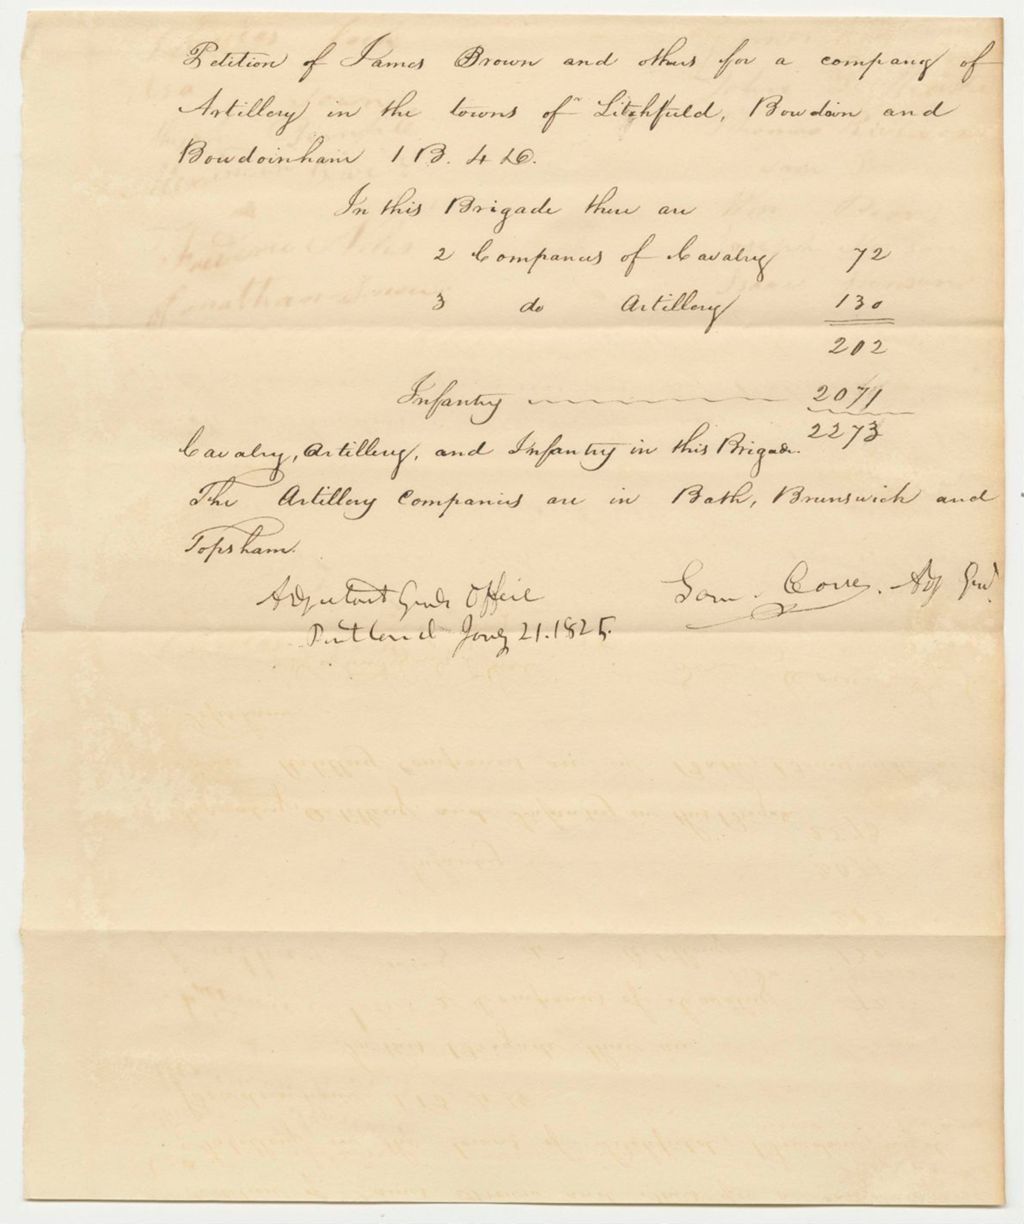 Petition of James Brown and others for a company of
Artillery in the towns of Litchfield, Bowdoin and
Bowdoinham 1 B. 4 D.
In this Brigade there are
2 Companies of Cavalry 72
3 do Artillery 130
202
Infantry 2071
2273
Cavalry, Artillery, and Infantry in this Brigade.
The Artillery Companies are in Bath, Brunswick and
Topsham.
Adjutant Genls Office Sam. Cony. Adj Genl.
Portland Jany 21. 1825.